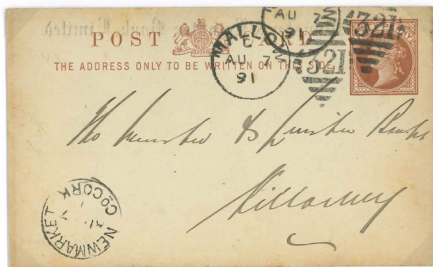 POST CARD
THE ADDRESS ONLY TO BE WRITTEN ON THIS SIDE
MALLOW
C
AU
91
AU
91
321
321
The Munster & Leinster Bank
Killarney
NEWMARKET
CO.CORK